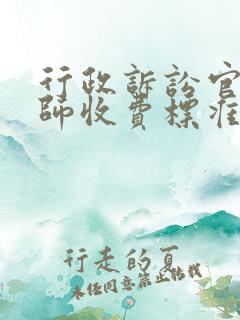 行政訴訟官
師收費標准
行走的夏
未经同意禁止转载